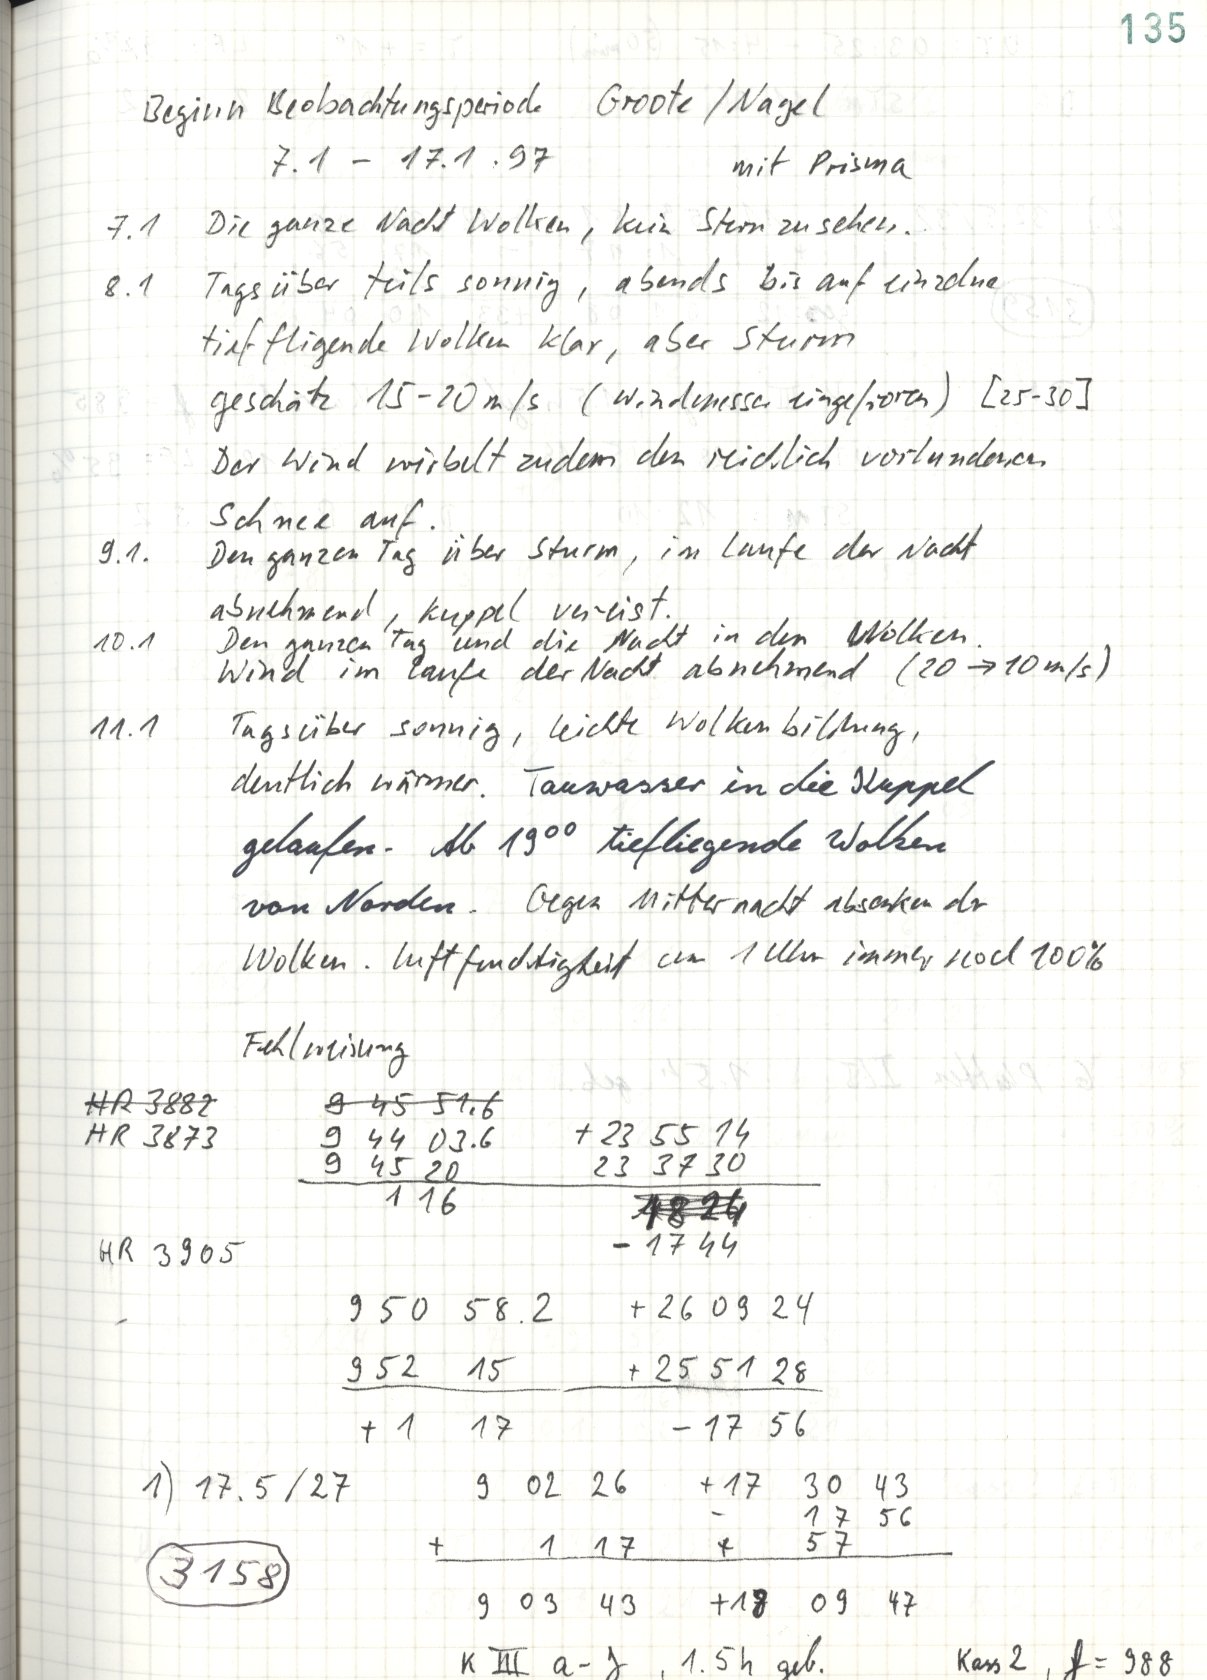 135
Beginn Beobachtungsperiode Groote/Nagel
7.1 - 17.1.97 mit Prisma
7.1 Die ganze Nacht Wolken, kein Stern zu sehen.
8.1 Tagsüber teils sonnig, abends bis auf einzelne
tieffligende Wolken klar, aber Sturm
geschätz 15-20 m/s (Windmesser eingefroren) [25-30]
Der Wind wirbelt zudem den reichlich vorhandenen
Schnee auf.
9.1. Den ganzen Tag über Sturm, im Laufe der Nacht
abnehmend, Kuppel vereist.
10.1 Den ganzen Tag und die Nacht in den Wolken.
Wind im Laufe der Nacht abnehmend (20 → 10 m/s)
11.1 Tagsüber sonnig, leichte Wolkenbildung,
deutlich wärmer. Tauwasser in die Kuppel
gelaufen. Ab 19⁰⁰ tiefliegende Wolken
von Norden. Gegen Mitternacht absenken der
Wolken. Luftfeuchtigkeit um 1 Uhr immer noch 100%
Fehlweisung
HR 3882 9 45 51.6
HR 3873 9 44 03.6 + 23 55 14
9 45 20 23 37 30
1 16 18 24
- 17 44
HR 3905
9 50 58.2 + 26 09 24
9 52 15 + 25 51 28
+ 1 17 - 17 56
1) 17.5/27 9 02 26 +17 30 43
- 17 56
+ 1 17 + 57
3158
9 03 43 +18 09 47
K III a-J, 1.5h geb. Kass 2, f = 988